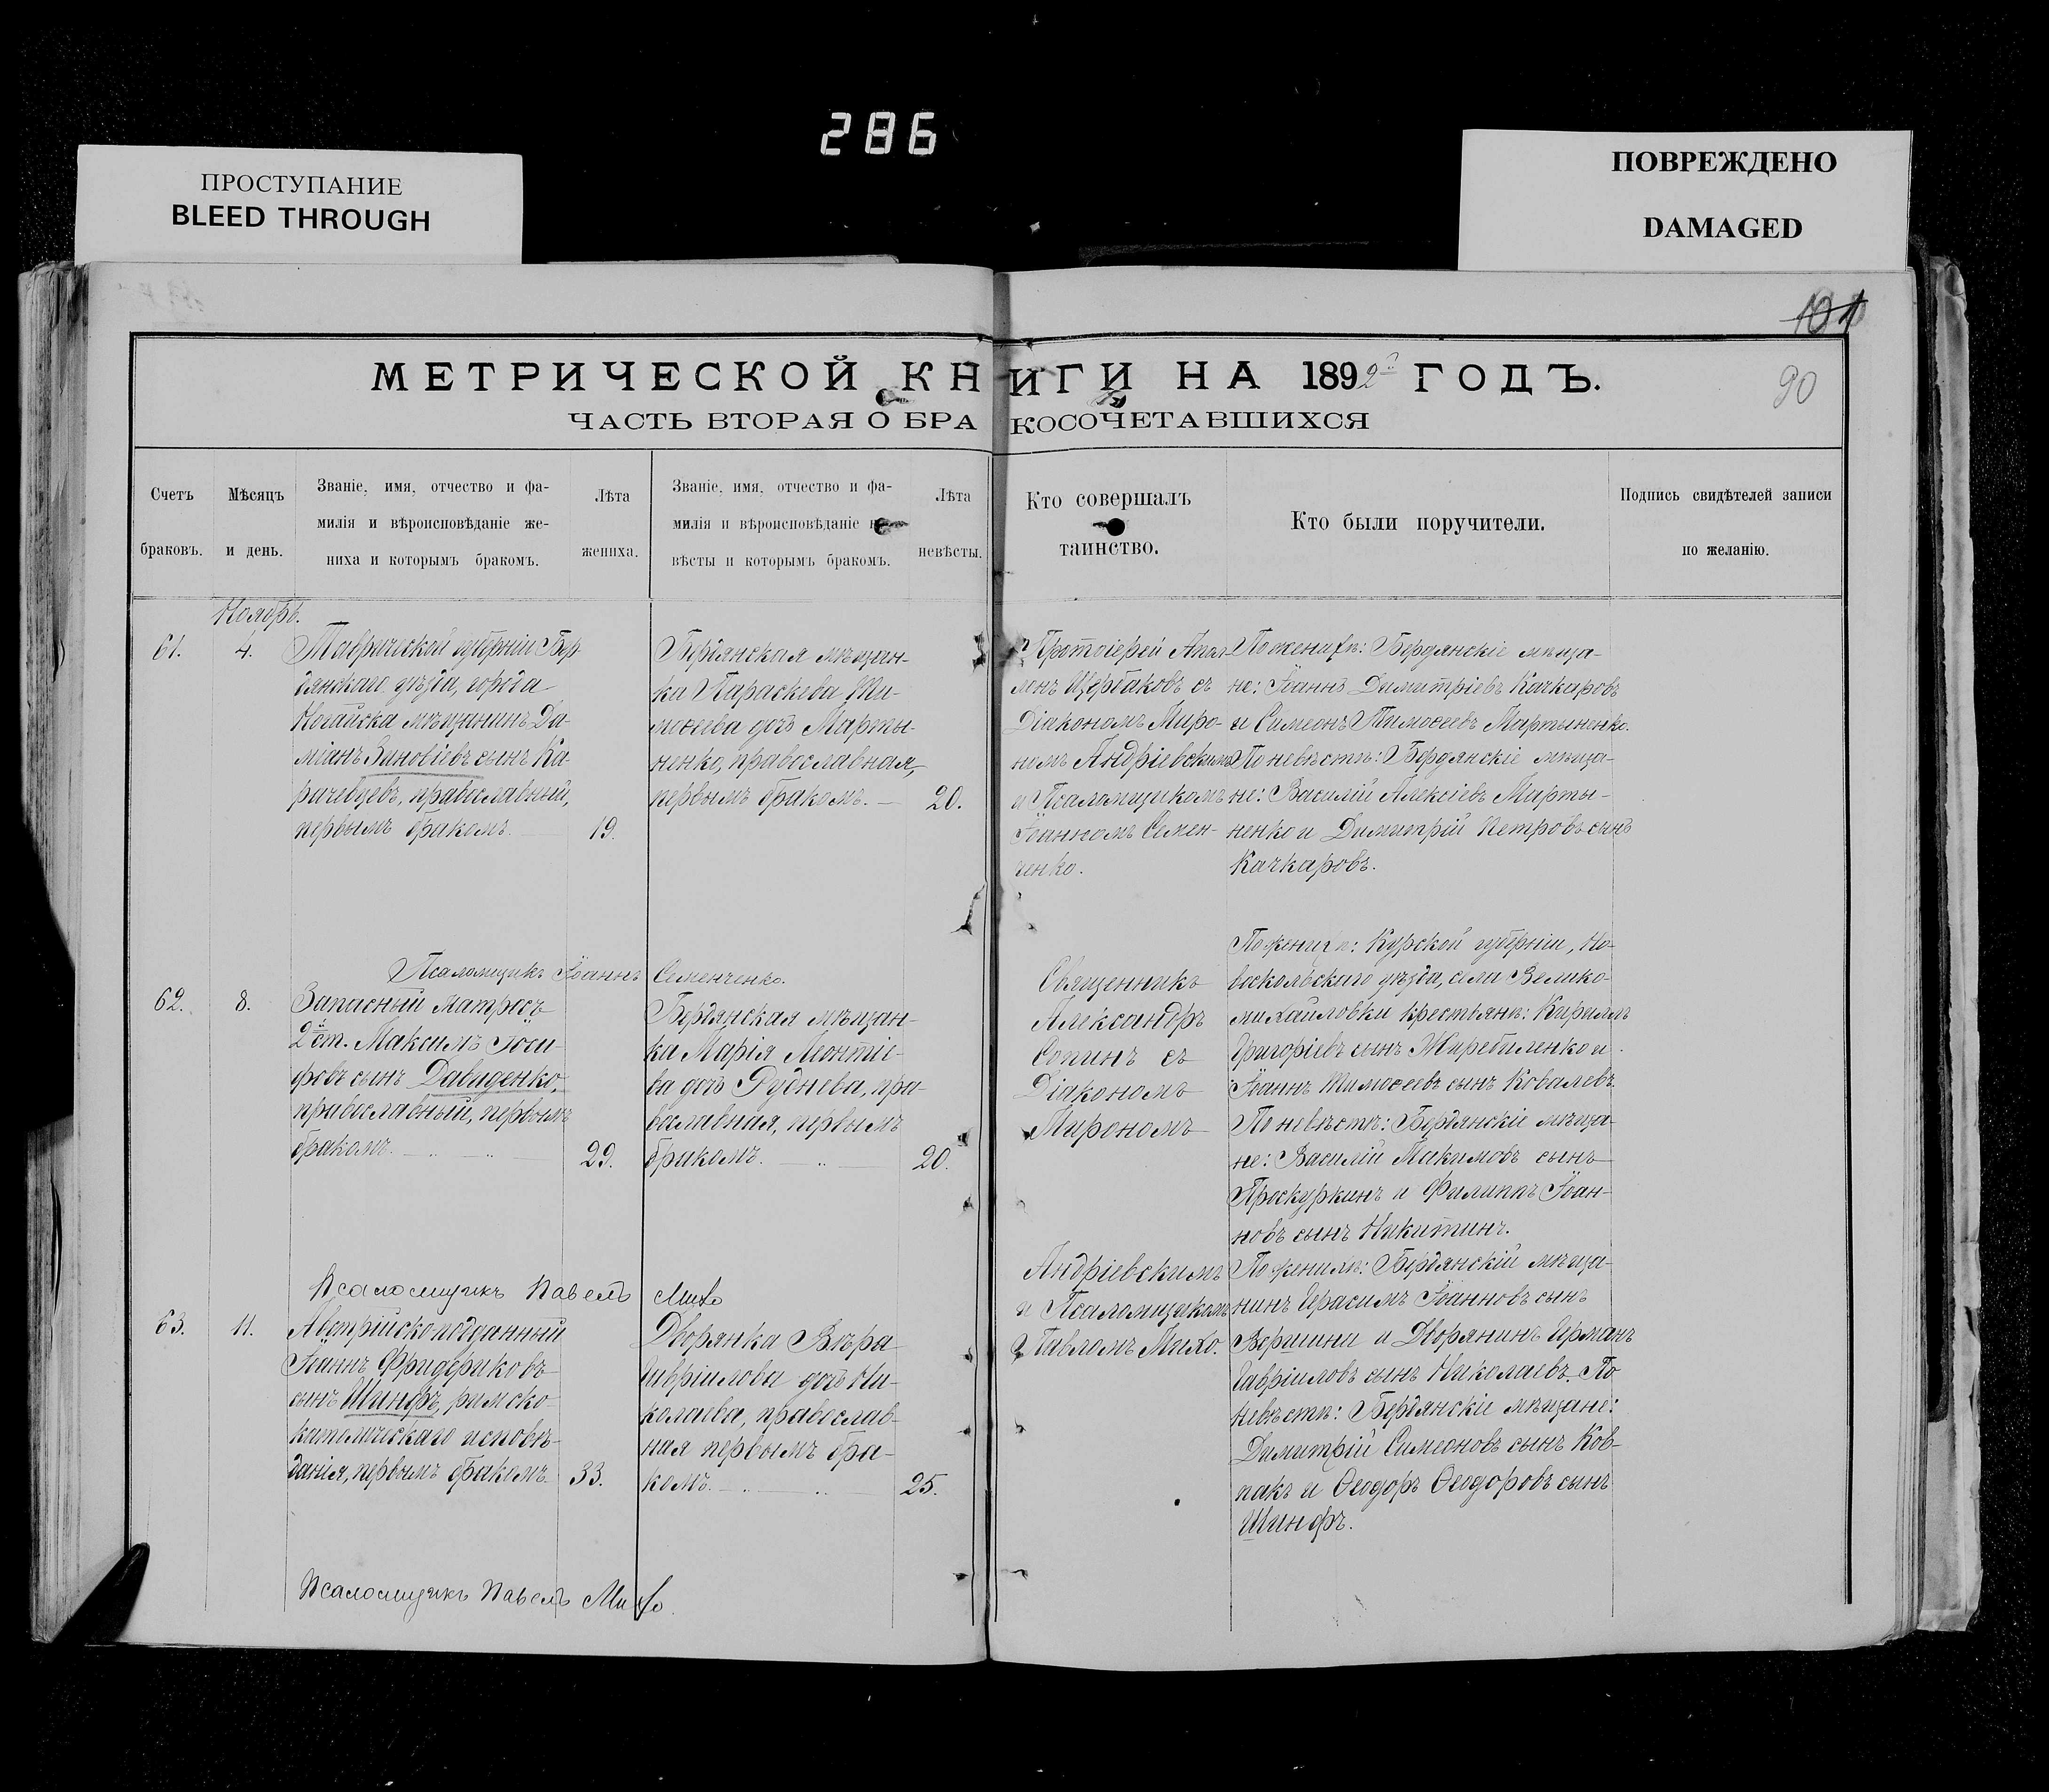 286
ПРОСТУПАНИЕ
BLEED THROUGH
ПОВРЕЖДЕНО
DAMAGED
101
90
МЕТРИЧЕСКОЙ КНИГИ НА 1892й ГОДЪ.
ЧАСТЬ ВТОРАЯ О БРАКОСОЧЕТАВШИХСЯ
Счетъ
браковъ.
Мѣсяцъ
и день.
Званіе, имя, отчество и фа-
милія и вѣроисповѣданіе же-
ниха и которымъ бракомъ.
Лѣта
жениха.
Званіе, имя, отчество и фа-
милія и вѣроисповѣданіе не-
вѣсты и которымъ бракомъ.
Лѣта
невѣсты.
Кто совершалъ
таинство.
Кто были поручители.
Подпись свидѣтелей записи
по желанію.
Ноябрь.
61.
4.
Таврической губерніи Бер
дянскаго уѣзда, города
Ногайска мѣщанинъ Да-
міанъ Зиновіевъ сынъ Ка-
рачевцевъ, православный,
первымъ бракомъ.
19.
Бердянская мѣщан-
ка Параскева Ти-
моѳеева дочь Марты-
ненко, православная,
первымъ бракомъ. —
20.
Протоіерей Апол-
лонъ Щербаковъ съ
Діакономъ Миро-
номъ Андріевскимъ
и Псаломщикомъ
Іоанномъ Семен-
ченко.
По женихѣ: Бердянскіе мѣща-
не: Іоаннъ Димитріевъ Качкаровъ
и Симеонъ Тимоѳеевъ Мартыненко.
По невѣстѣ: Бердянскіе мѣща-
не: Василій Алексіевъ Марты-
ненко и Димитрій Петровъ сынъ
Качкаровъ.
Псаломщикъ Іоаннъ Семенченко.
62.
8.
Запасный матросъ
2й ст. Максимъ Іоси-
фовъ сынъ Давиденко,
православный, первымъ
бракомъ.
29.
Бердянская мѣщан-
ка Марія Леонтіе-
ва дочь Руднева, пра-
вославная, первымъ
бракомъ.
20.
Священникъ
Александръ
Сопинъ съ
Діакономъ
Мирономъ
Андріевскимъ
и Псаломщикомъ
Павломъ Михо.
По женихѣ: Курской губерніи, Но-
воскольскаго уѣзда, села Велико-
михайловки крестьяне: Кириллъ
Григоріевъ сынъ Жиребиленко и
Іоаннъ Тимоѳеевъ сынъ Ковалевъ.
По невѣстѣ: Бердянскіе мѣща-
не: Василій Макимовъ сынъ
Проскуркинъ и Филиппъ Іоан-
новъ сынъ Никитинъ.
Псаломщикъ Павелъ Михо
63.
11.
Австрійскоподданный
Іоаннъ Фридериковъ
сынъ Шинфъ, римско-
католическаго исповѣ-
данія, первымъ бракомъ.
33.
Дворянка Вѣра
Гавріилова дочь Ни-
колаева, православ-
ная первымъ бра-
комъ.
25.
По женихѣ: Бердянскій мѣща-
нинъ Герасимъ Іоанновъ сынъ
Вершини и Дворянинъ Германъ
Гавріиловъ сынъ Николаевъ. По
невѣстѣ: Бердянскіе мѣщане:
Димитрій Симеоновъ сынъ Ков-
пакъ и Ѳеодоръ Ѳеодоровъ сынъ
Шинфъ.
Псаломщикъ Павелъ Михо.